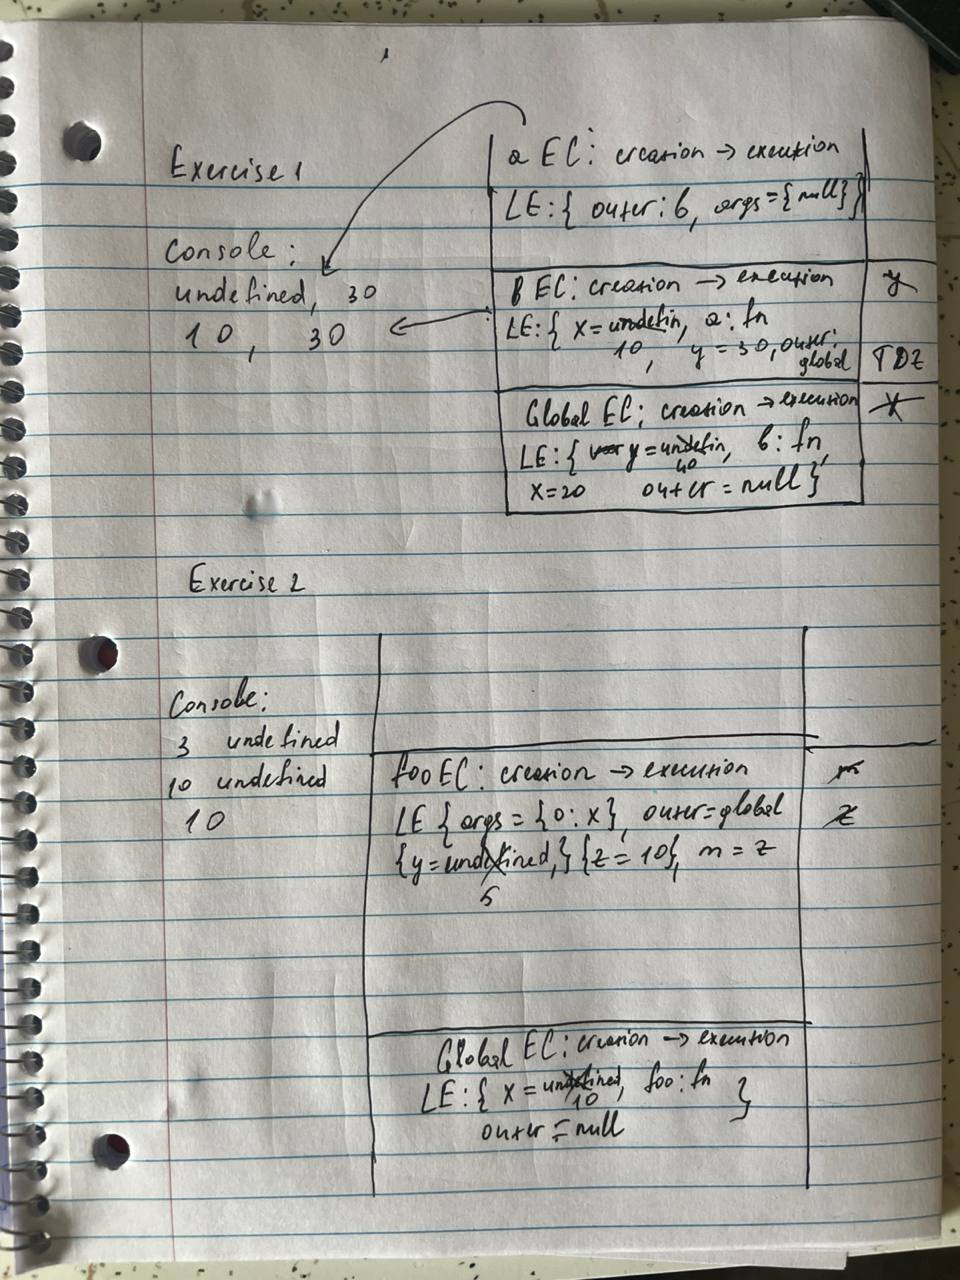 Exercise 1
Console:
undefined, 30
10, 30
a EC: creation → execution
LE: { outer: b, args = {null}}
b EC: creation → execution
LE: { x = undefin, a: fn
10, y = 30, outer:
global
y
TDZ
Global EC: creation → execution
LE: { var y = undefin, b: fn,
40
x = 20 outer = null }
x
Exercise 2
Console:
3 undefined
10 undefined
10
foo EC: creation → execution
LE { args = {0: x}, outer = global
{y = undefined,} {z = 10}, m = z
5
m
z
Global EC: creation → execution
LE: { x = undefined, foo: fn }
10
outer = null